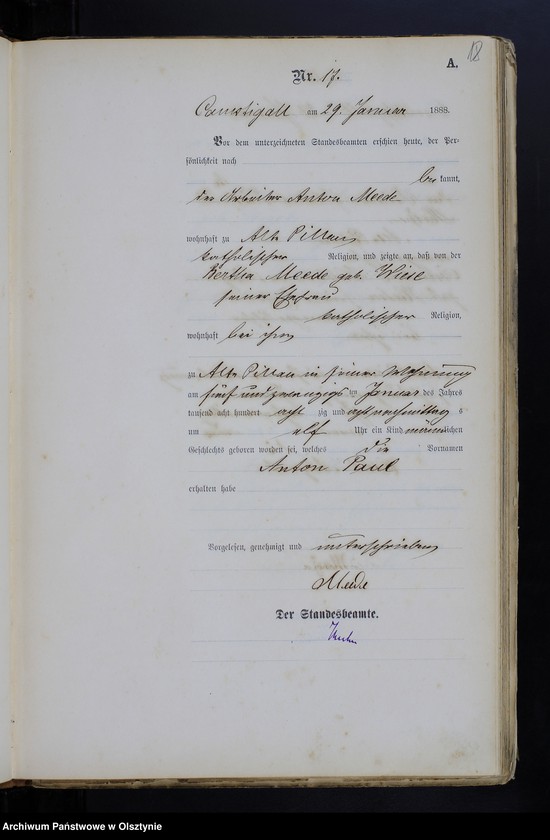 18
A.
Nr. 17.
Camstigall am 29. Januar 1888.
Vor dem unterzeichneten Standesbeamten erschien heute, der Per-
sönlichkeit nach
be kannt,
der Arbeiter Anton Meede
wohnhaft zu Alt Pillau
katholischer Religion, und zeigte an, daß von der
Bertha Meede geb. Wiese
seiner Ehefrau
katholischer Religion,
wohnhaft bei ihm
zu Alt Pillau in seiner Wohnung
am fünf und zwanzigsten Januar des Jahres
tausend acht hundert acht zig und acht nachmittags
um elf Uhr ein Kind männlichen
Geschlechts geboren worden sei, welches die Vornamen
Anton Paul
erhalten habe
Vorgelesen, genehmigt und unterschrieben
Meede
Der Standesbeamte.
Archiwum Państwowe w Olsztynie